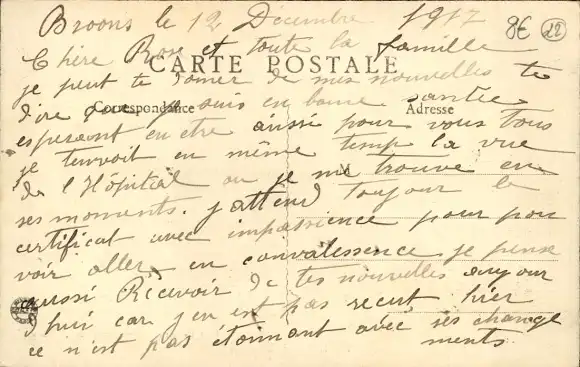 Broons le 12 Décembre 1917
8€ 22
Chère Rose et toute la famille
CARTE POSTALE
je peut te donner de mes nouvelles te
dire que je suis en bonne santée
Correspondance Adresse
esperaont en etre aussi pour vous tous
je tenvoit en même temp la vue
M
de l'Hôpital ou je me trouve en
ses moments. j'attend toujour le
certificat avec impatience pour pou
voir aller en convalessence je pense
aussi Recevoir de tes nouvelles aujour
d'hui car j'en est pas recut hier
ce n'est pas étonnant avec ses change
ments.